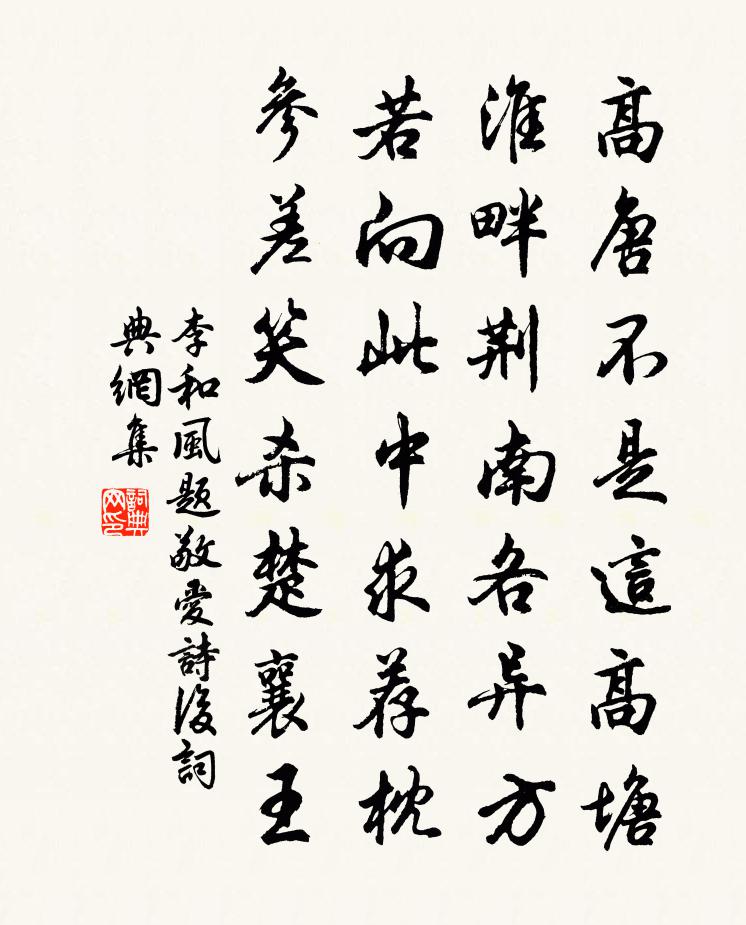 高唐不是這高塘
淮畔荆南各异方
若向此中求荐枕
參差笑杀楚襄王
李和風题敬愛詩後詞
典網集
詞典网印